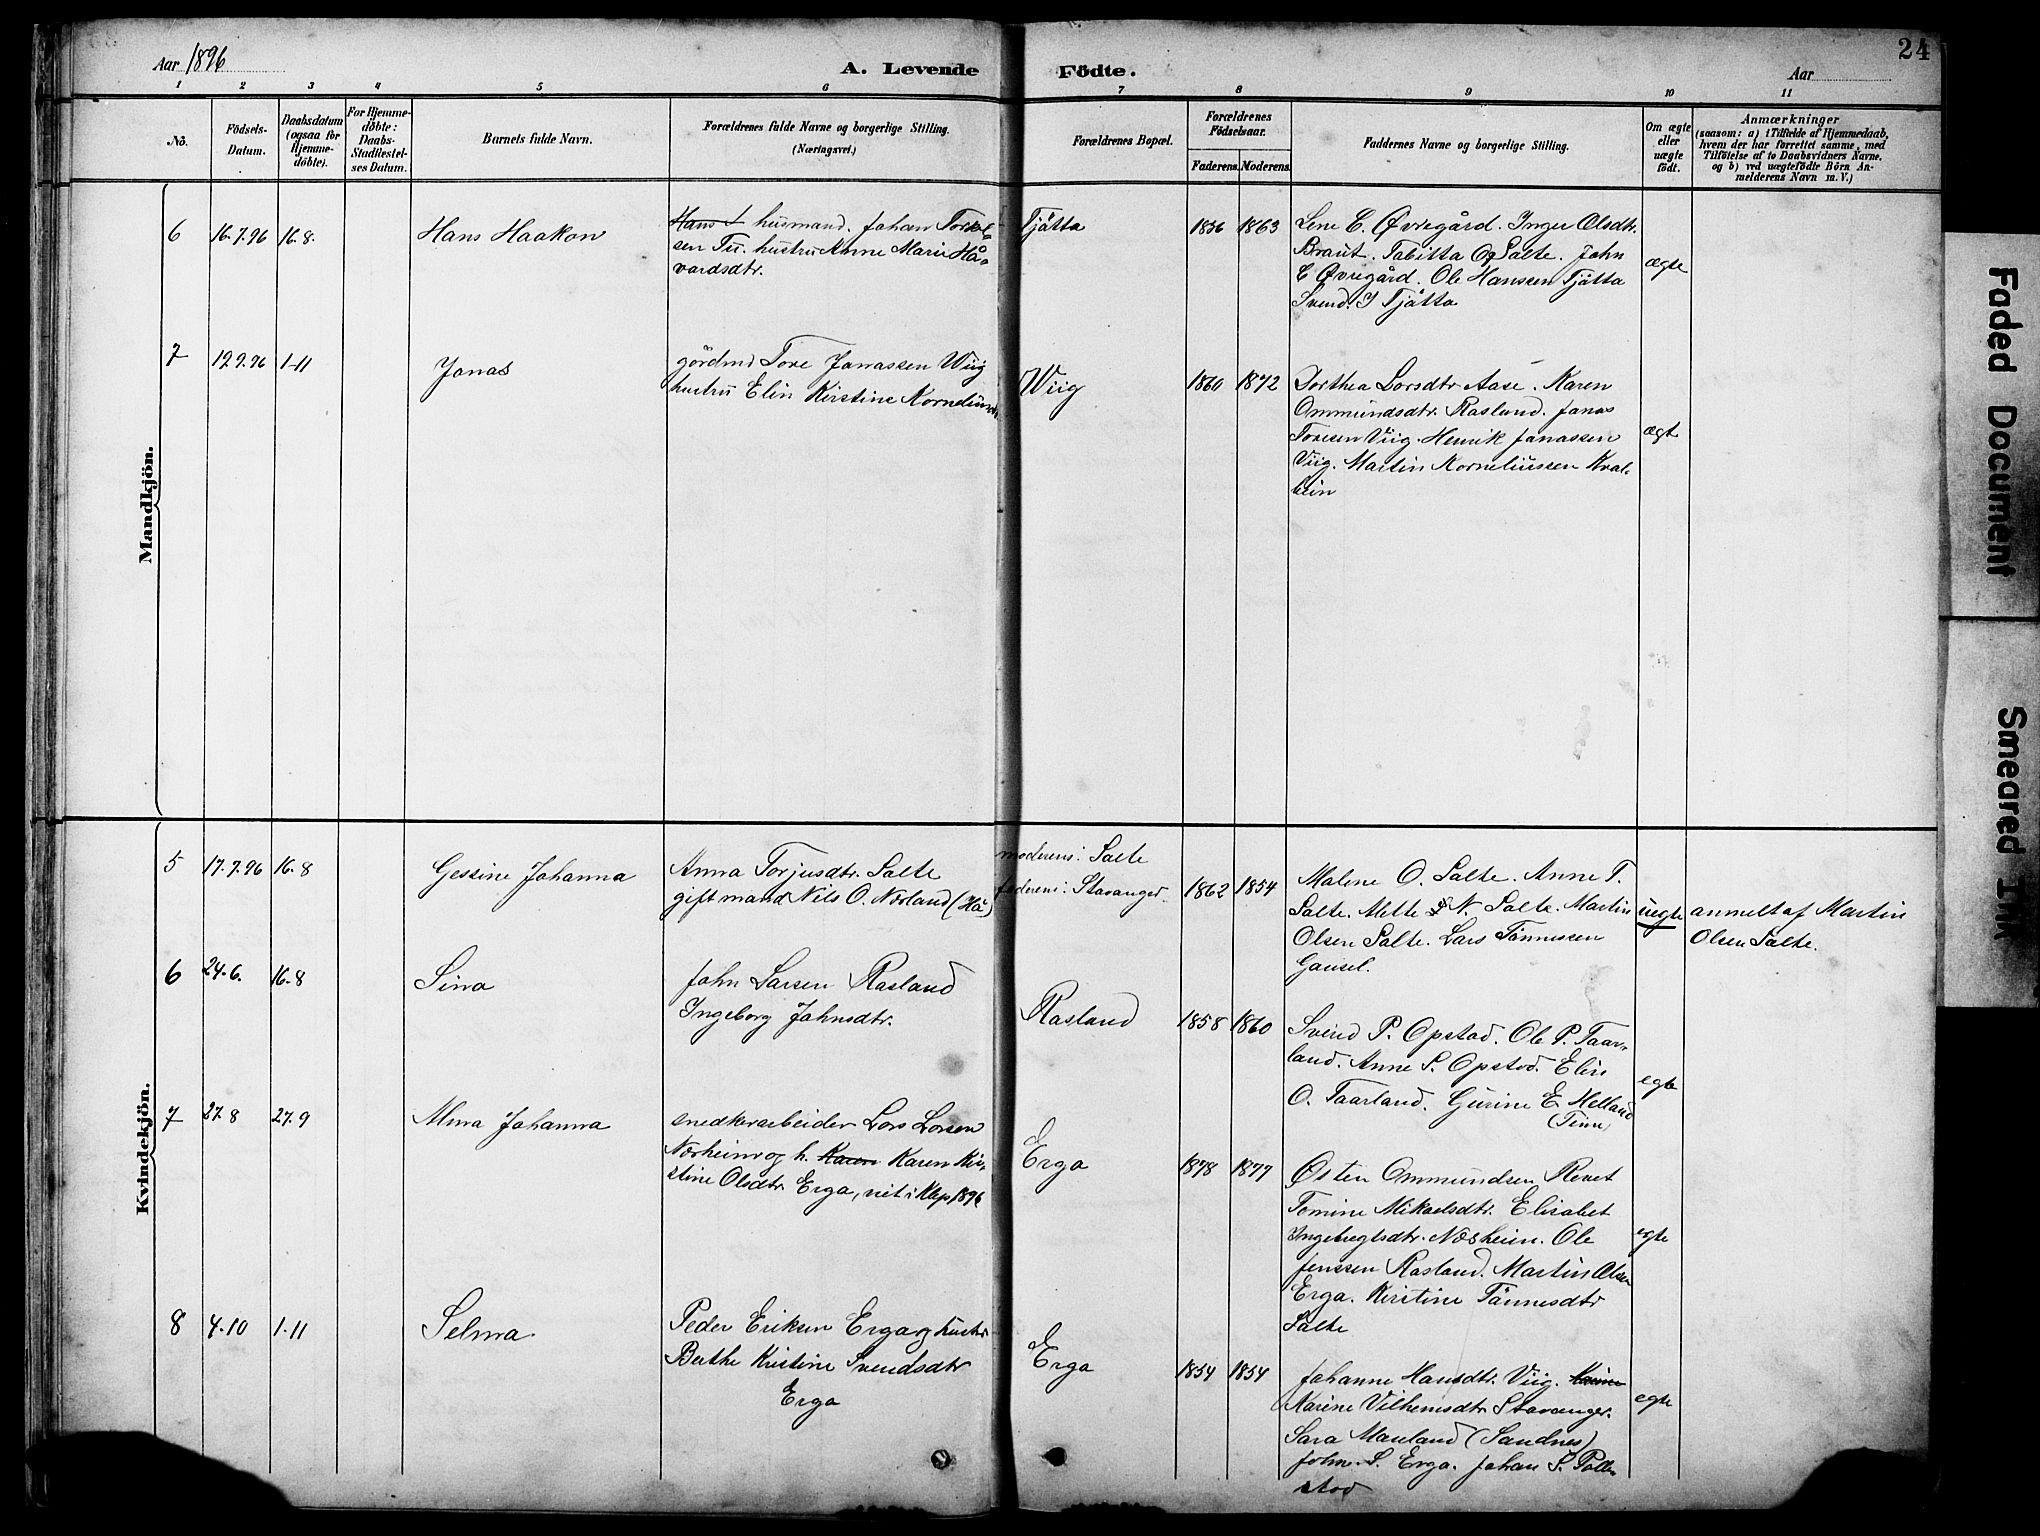 24
Aar 1896
A. Levende Födte.
Aar
1 2 3 4 5 6 7 8 9 10 11
No.
Födsels-
Datum.
Daabsdatum
(ogsaa for
Hjemme-
döbte).
For Hjemme-
döbte:
Daabs-
Stadfæstel-
ses Datum.
Barnets fulde Navn.
Forældrenes fulde Navne og borgerlige Stilling.
(Næringsvei.)
Forældrenes Bopæl.
Forældrenes
Födselsaar.
Faderens. Moderens.
Faddernes Navne og borgerlige Stilling.
Om ægte
eller
uægte
födt.
Anmærkninger
(saasom: a) i Tilfælde af Hjemmedaab,
hvem der har forrettet samme, med
Tilföielse af to Daabsvidners Navne,
og b) ved uægtefödte Börn An-
melderens Navn m. V.)
Mandkjön.
6 16.7.96 16.8.
Hans Haakon
Hans husmand. Johan Torkel-
sen Tu. hustru Anne Marie Hå-
vardsdtr.
Tjåtta
1856 1863
Lene E. Øvregård. Inger Olsdtr.
Braut. Tabitta O Salte. John
E Øvregård. Ole Hanssen Tjåtta
Svend. I Tjåtta
ægte
7 19.9.96 1-11
Jonas
gårdmd Tore Jonassen Wiig
hustru Elin Kirstine Kornelius
Wiig
1860 1872
Dorthea Larsdtr Aase. Karen
Ommundsdtr. Rasland. Jonas
Toresen Viig. Henrik Jonassen
Viig. Martin Korneliussen Kval-
bein
ægt
Kvindekjön.
5 17.7.96 16.8
Gessine Johanna
Anna Torjusdtr. Salte
gift mand Nils O. Nærland (Hå)
moderens: Salte
faderens: Stavanger.
1862 1854
Malene O. Salte. Anne T.
Salte. Mette N. Salte. Martin
Olsen Salte. Lars Tønnessen
Gausel.
uegte
anmelt af Martin
Olsen Salte.
6 24.6. 16.8
Sina
John Larsen Rasland
Ingeborg Johnsdtr.
Rasland
1858 1860
Svend P. Opstad. Ole P. Taar-
land. Anne S. Opstad. Elin
O. Taarland. Gurine E. Helland
(Time)
egte
7 27.8 27.9
Alma Johanna
snedkerarbeider Lars Larsen
Nærheim og h. Karen Karen Kir-
stine Olsdtr. Erga, viet i Klep 1896
Erga
1878 1877
Østen Ommundsen Revet
Tomine Mikaelsdtr. Elisabet
Ingebregtsdtr. Næsheim. Ole
Jenssen Rasland. Martin Olsen
Erga. Kirstine Tønnesdtr
Salte
egte
8 4.10 1.11
Selma
Peder Eriksen Erga og hustr.
Berthe Kristine Svendsdtr
Erga
Erga
1854 1854
Johanne Hansdtr. Viig. Karine
Karine Vilhemsdtr Stavanger.
Sara Mauland (Sandnes)
John. S. Erga. Johan S. Polle-
stad
egte
Faded Document
Smeared Ink